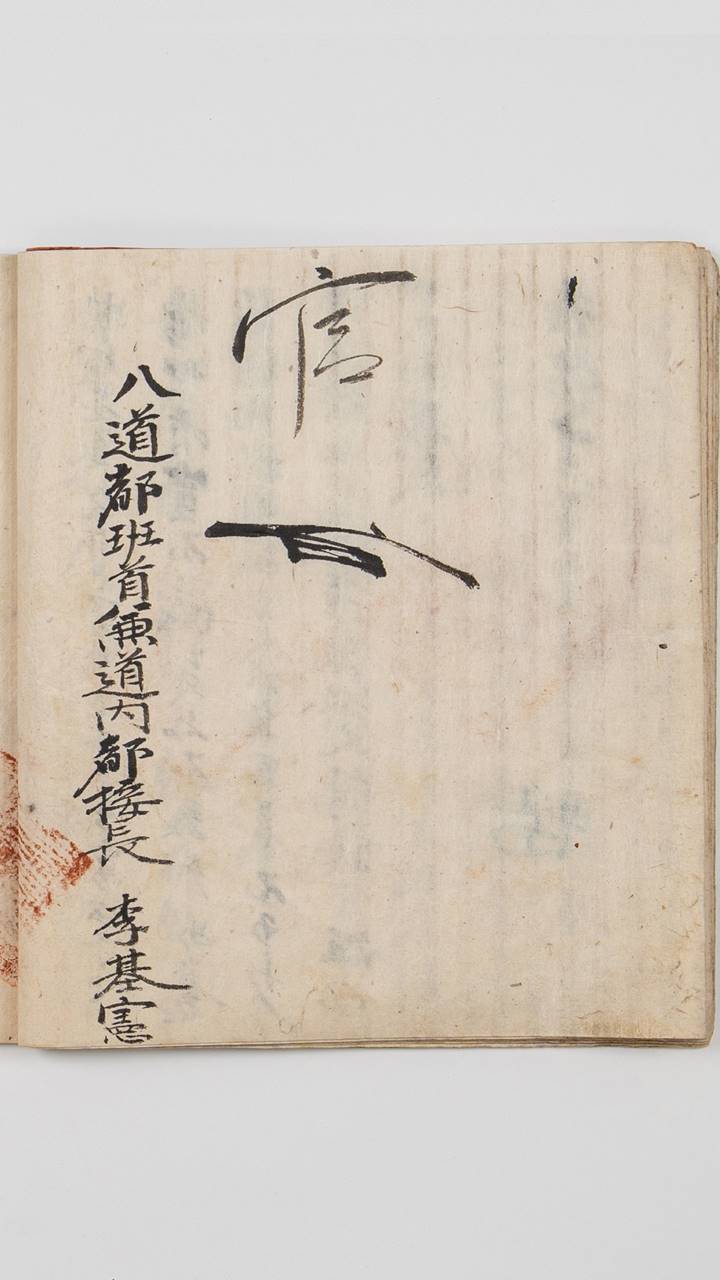 官
八道都班首兼道内都接長 李基憲